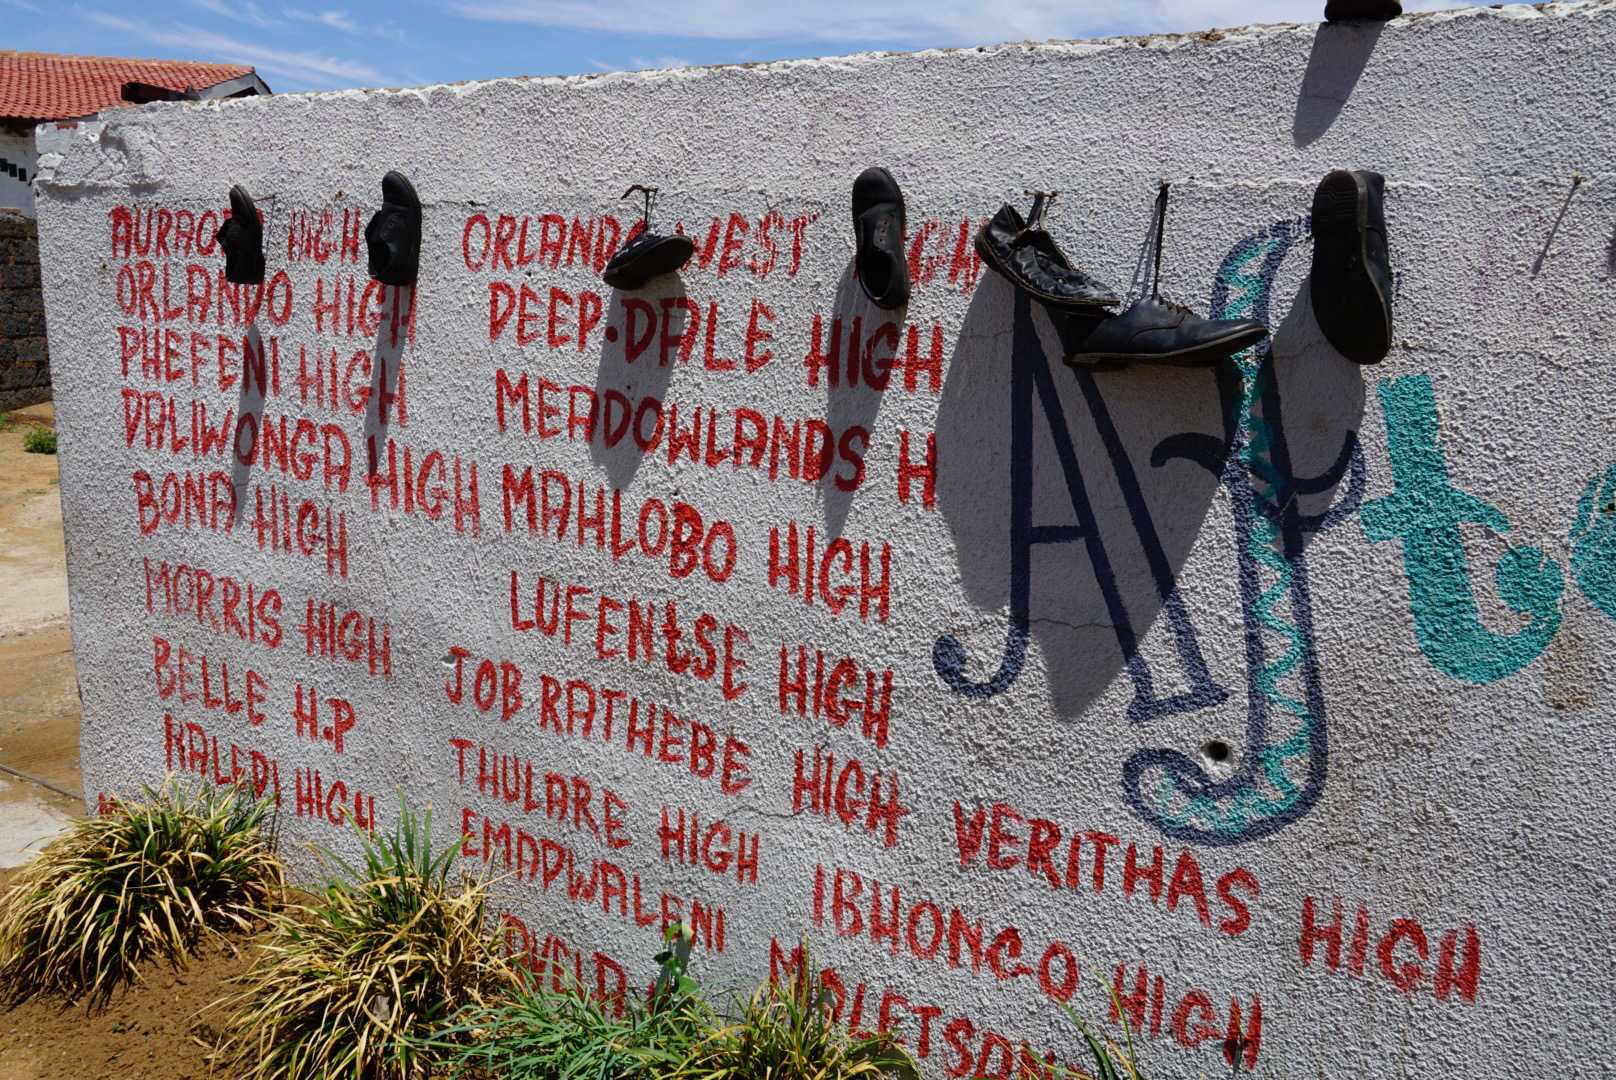 HIGH
ORLANDO HIGH
PHEFENI HIGH
DALIWONGA HIGH
BONA HIGH
MORRIS HIGH
BELLE H.P
KALEDI HIGH
ORLANDO WEST HIGH
DEEP·DALE HIGH
MEADOWLANDS H
MAHLOBO HIGH
LUFENtSE HIGH
JOB RATHEBE HIGH
THULARE HIGH
EMADWALENI
VERITHAS HIGH
IBHONGO HIGH